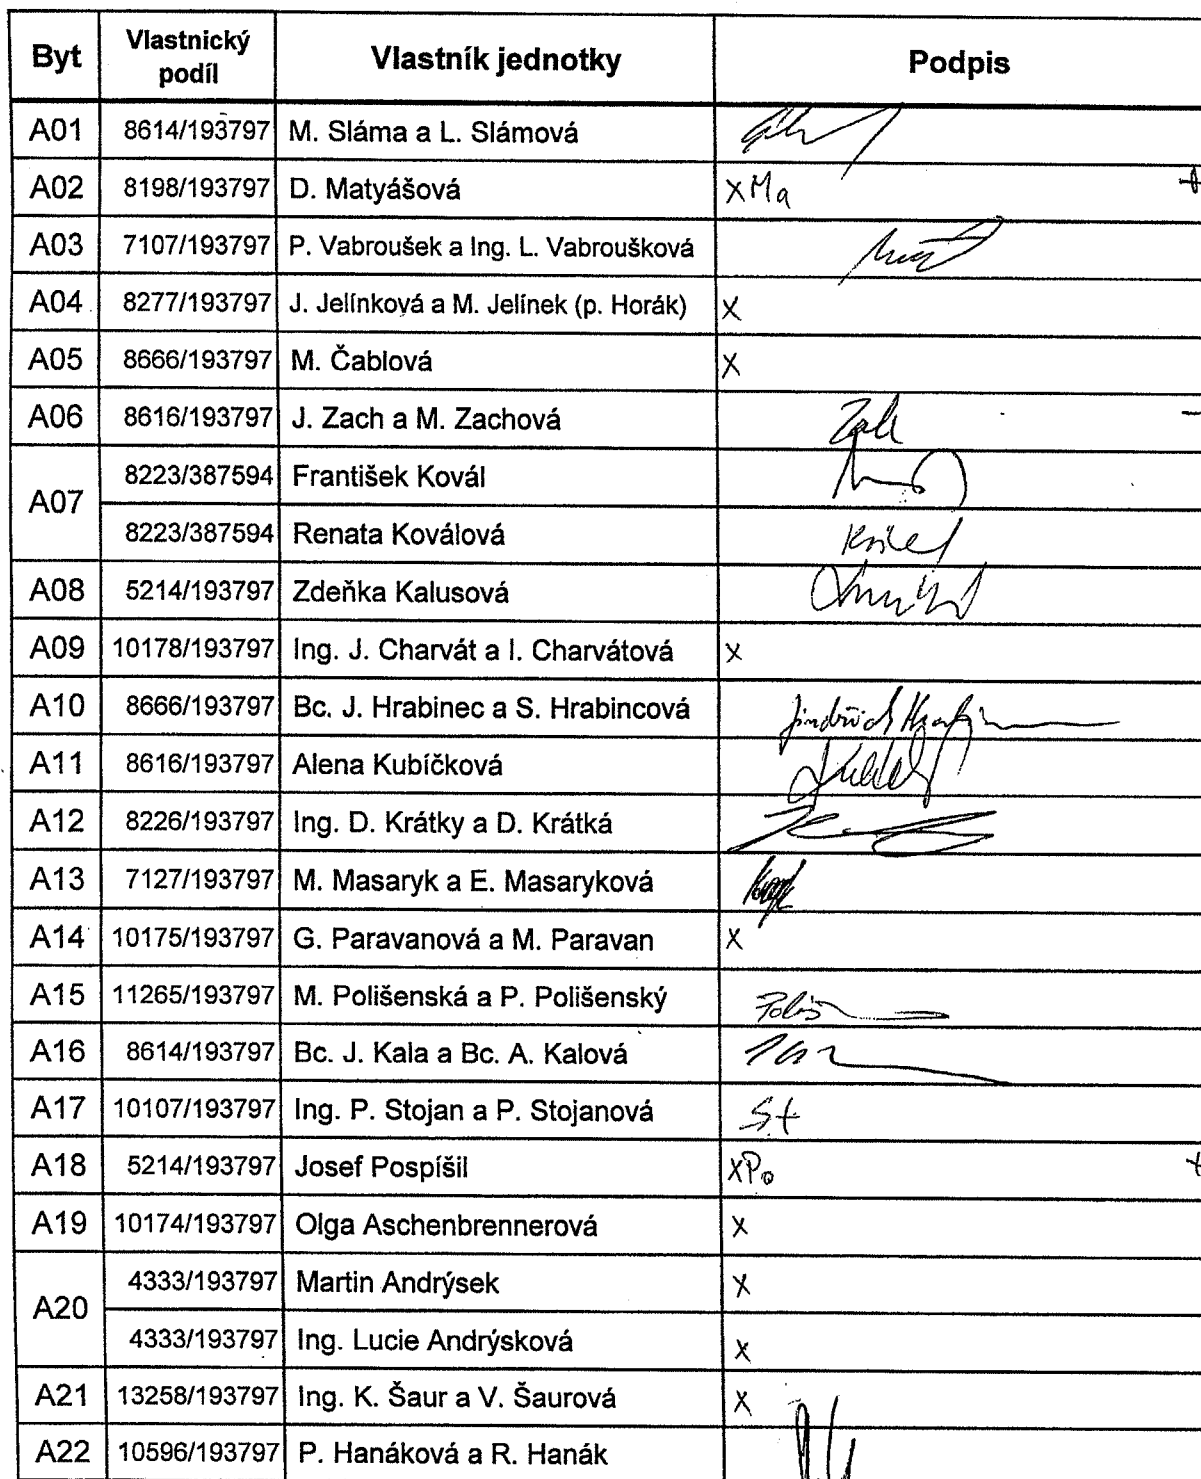 Byt Vlastnický podíl Vlastník jednotky Podpis
A01 8614/193797 M. Sláma a L. Slámová
A02 8198/193797 D. Matyášová XMa +
A03 7107/193797 P. Vabroušek a Ing. L. Vabroušková
A04 8277/193797 J. Jelínková a M. Jelínek (p. Horák) X
A05 8666/193797 M. Čablová X
A06 8616/193797 J. Zach a M. Zachová Zach
A07 8223/387594 František Kovál
8223/387594 Renata Koválová
A08 5214/193797 Zdeňka Kalusová
A09 10178/193797 Ing. J. Charvát a I. Charvátová X
A10 8666/193797 Bc. J. Hrabinec a S. Hrabincová Jindřich
A11 8616/193797 Alena Kubíčková
A12 8226/193797 Ing. D. Krátky a D. Krátká
A13 7127/193797 M. Masaryk a E. Masaryková
A14 10175/193797 G. Paravanová a M. Paravan X
A15 11265/193797 M. Polišenská a P. Polišenský
A16 8614/193797 Bc. J. Kala a Bc. A. Kalová
A17 10107/193797 Ing. P. Stojan a P. Stojanová St
A18 5214/193797 Josef Pospíšil XPo +
A19 10174/193797 Olga Aschenbrennerová X
A20 4333/193797 Martin Andrýsek X
4333/193797 Ing. Lucie Andrýsková X
A21 13258/193797 Ing. K. Šaur a V. Šaurová X
A22 10596/193797 P. Hanáková a R. Hanák